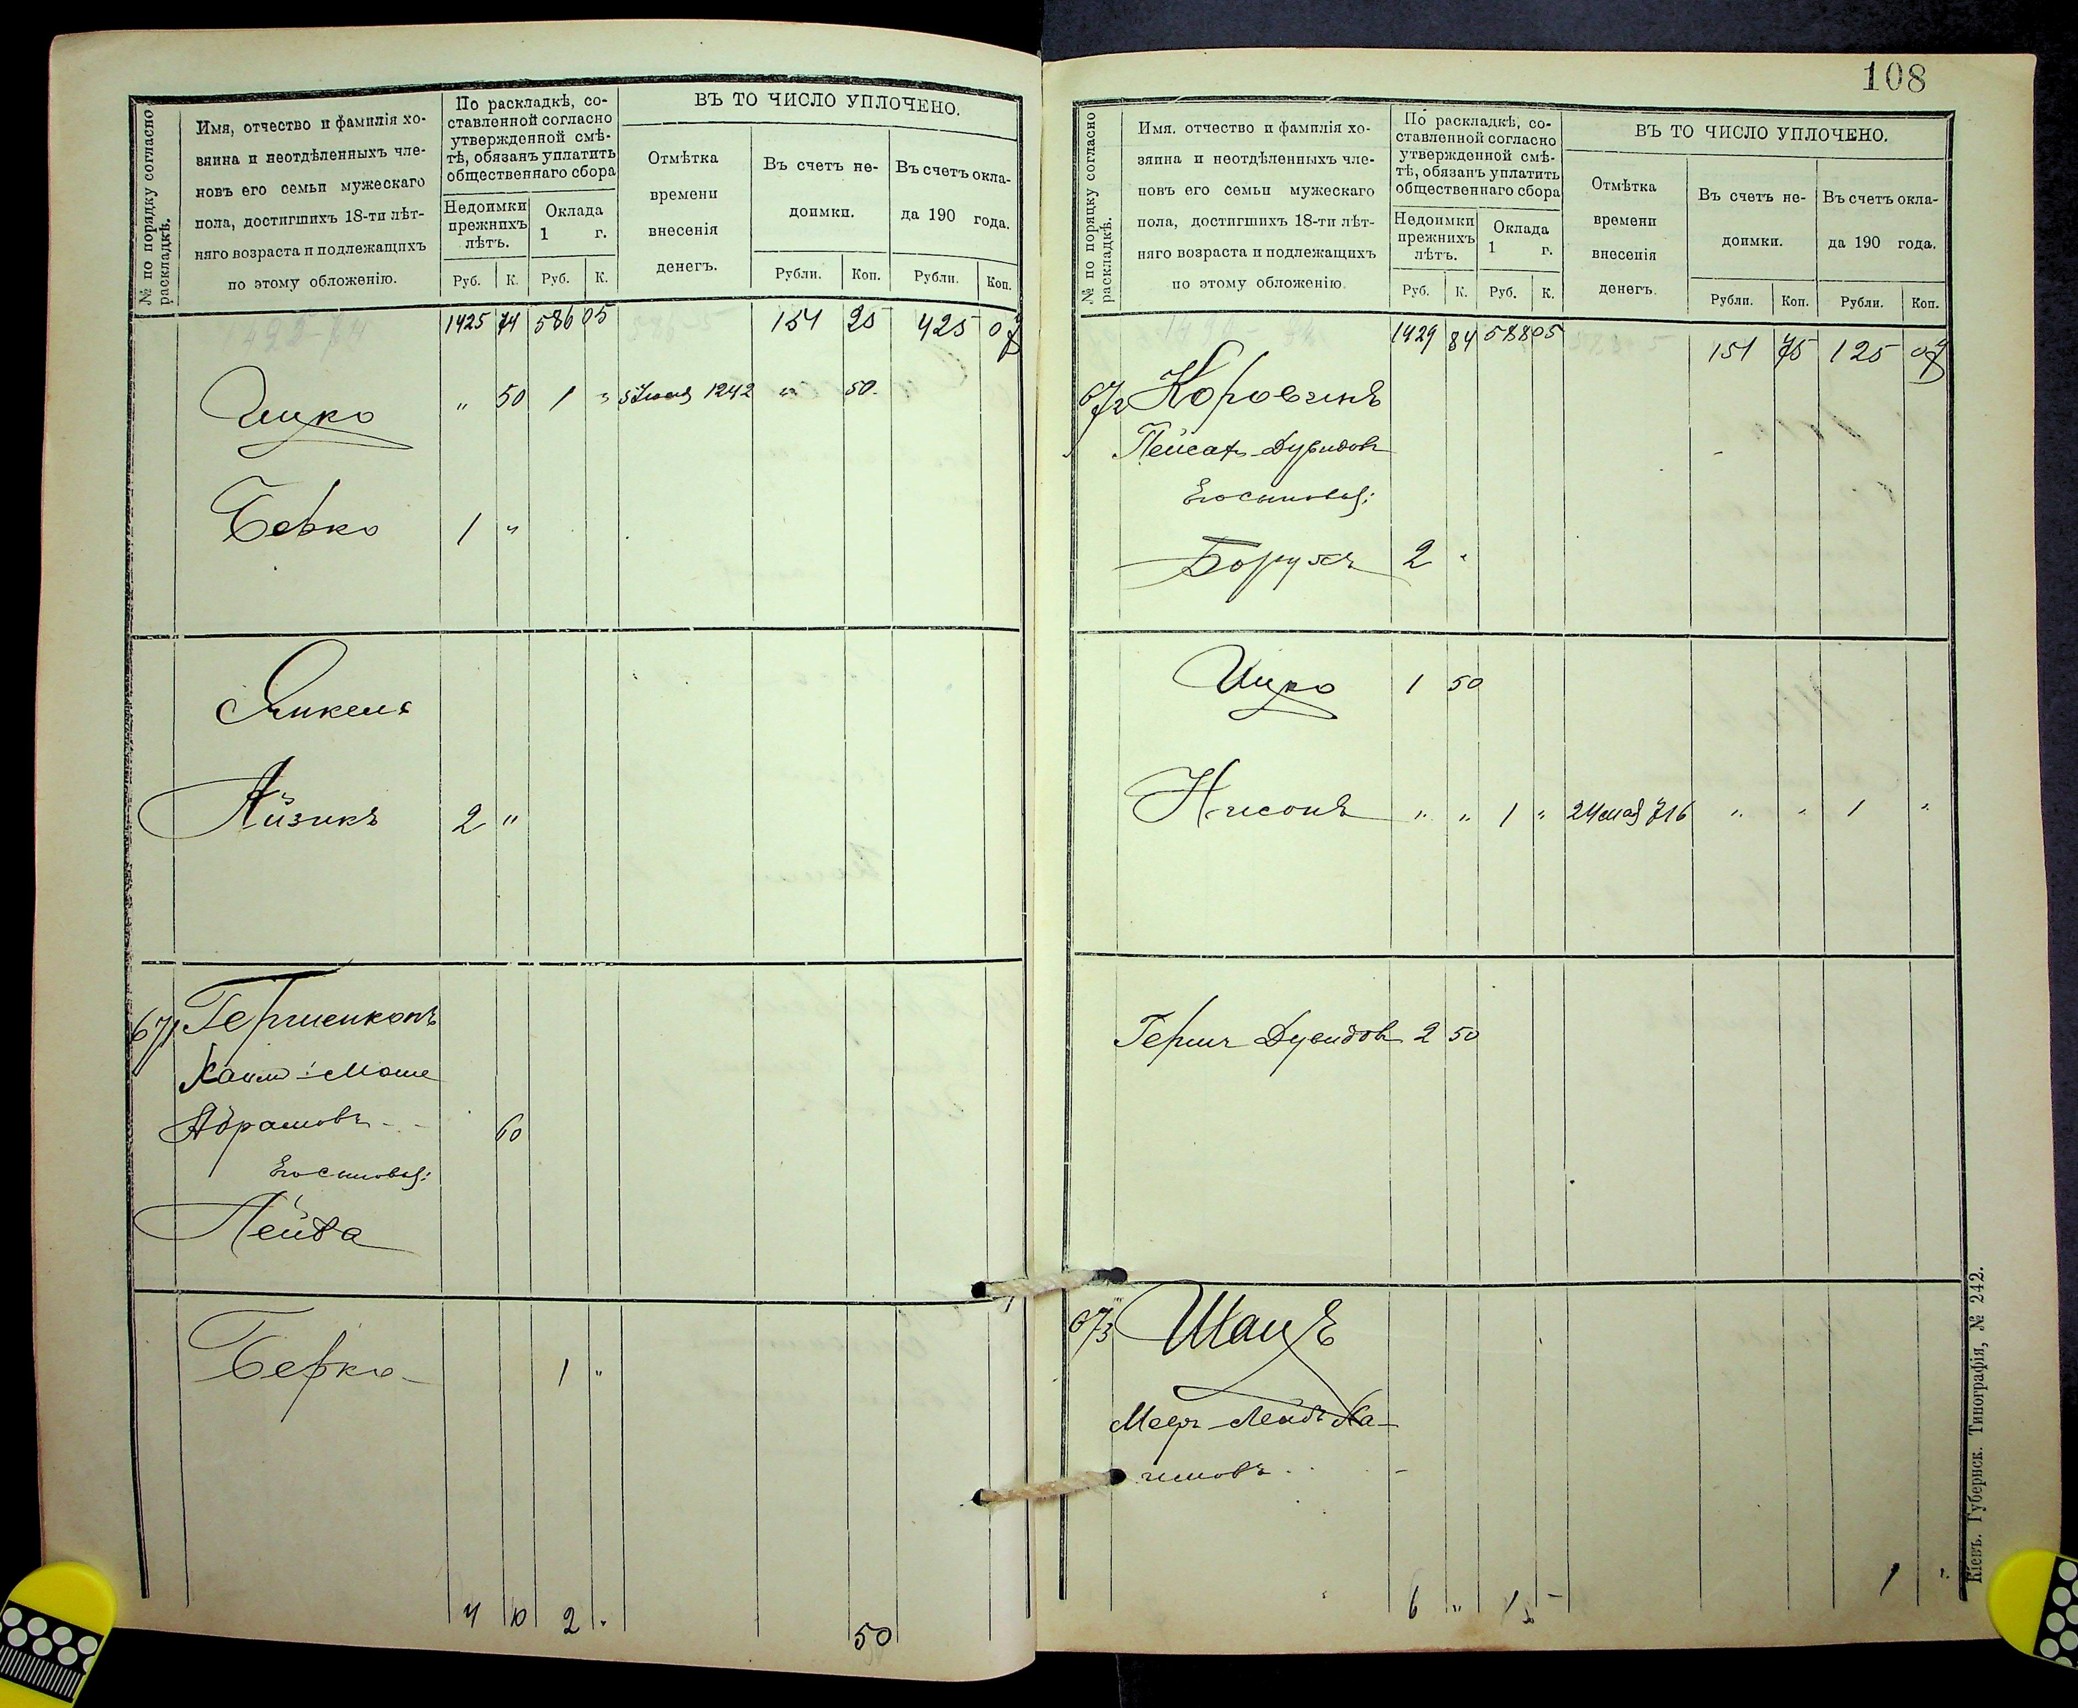 № по порядку согласно раскладкѣ.
Имя, отчество и фамилія хо-
зяина и неотдѣленныхъ чле-
новъ его семьи мужескаго
пола, достигшихъ 18-ти лѣт-
няго возраста и подлежащихъ
по этому обложенію.
По раскладкѣ, со-
ставленной согласно
утвержденной смѣ-
тѣ, обязанъ уплатить
общественнаго сбора
Недоимки прежнихъ лѣтъ.
Оклада 1 г.
Руб. К. Руб. К.
ВЪ ТО ЧИСЛО УПЛОЧЕНО.
Отмѣтка
времени
внесенія
денегъ.
Въ счетъ не-
доимки.
Рубли. Коп.
Въ счетъ окла-
да 190 года.
Рубли. Коп.
1425 74 586 05 151 25 425 07
Ицко " 50 1 " 5 Іюня 1242 " 50.
Берко 1 "
Янкель
Айзикъ 2 "
671 Гершенконъ
Хаимъ-Моше
Абрамовъ - - 60
Его сыновья:
Лейба
Берко 1 "
4 10 2 " 50
108
№ по порядку согласно раскладкѣ.
Имя. отчество и фамилія хо-
зяина и неотдѣленныхъ чле-
новъ его семьи мужескаго
пола, достигшихъ 18-ти лѣт-
няго возраста и подлежащихъ
по этому обложенію.
По раскладкѣ, со-
ставленной согласно
утвержденной смѣ-
тѣ, обязанъ уплатить
общественнаго сбора
Недоимки прежнихъ лѣтъ.
Оклада 1 г.
Руб. К. Руб. К.
ВЪ ТО ЧИСЛО УПЛОЧЕНО.
Отмѣтка
времени
внесенія
денегъ.
Въ счетъ не-
доимки.
Рубли. Коп.
Въ счетъ окла-
да 190 года.
Рубли. Коп.
1429 84 588 05 151 75 125 07
672 Коровчинъ
Пейсахъ Дувидовъ
Его сыновья:
Борухъ 2 "
Ицко 1 50
Нисонъ " " 1 " 24 мая 716 " " 1 "
Гершъ Дувидовъ 2 50
673 Шацъ
Меръ-Лейбъ Ха-
имовъ
6 " 1 " 1 "
Кіевъ. Губернск. Типографія, № 242.